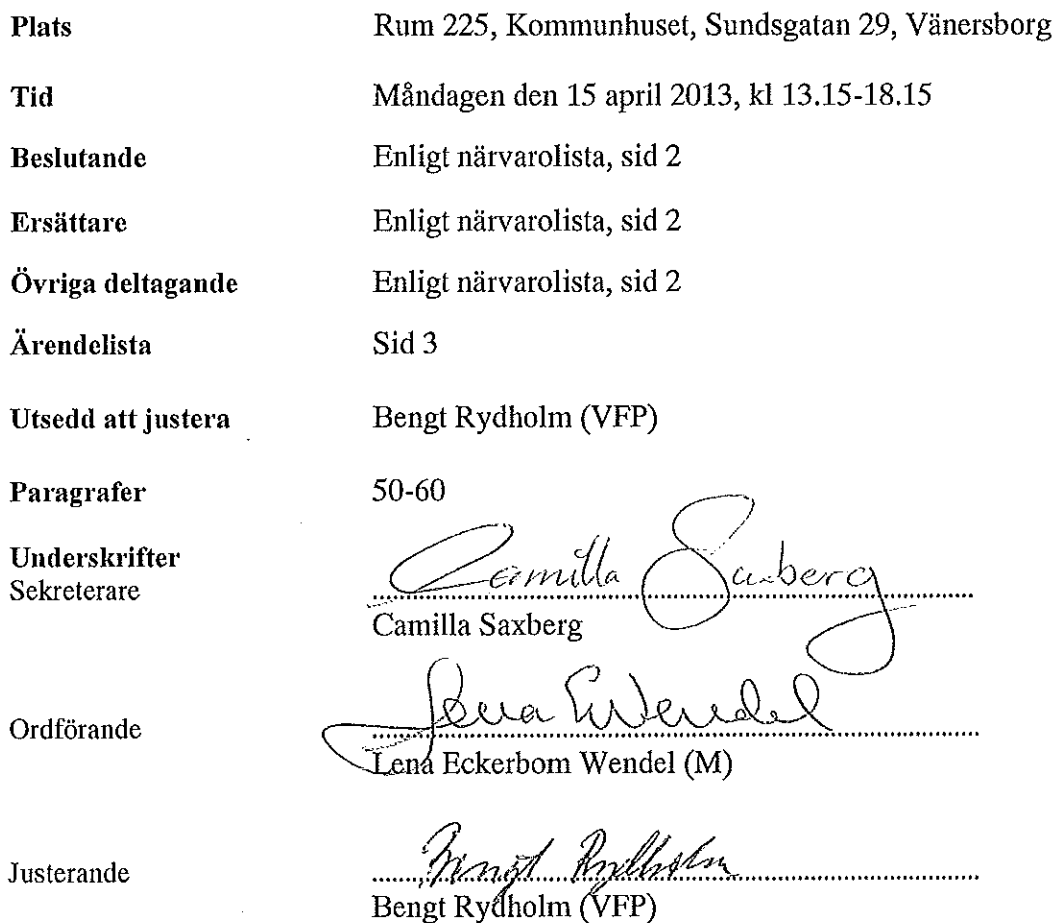 Plats Rum 225, Kommunhuset, Sundsgatan 29, Vänersborg
Tid Måndagen den 15 april 2013, kl 13.15-18.15
Beslutande Enligt närvarolista, sid 2
Ersättare Enligt närvarolista, sid 2
Övriga deltagande Enligt närvarolista, sid 2
Ärendelista Sid 3
Utsedd att justera Bengt Rydholm (VFP)
Paragrafer 50-60
Underskrifter
Sekreterare Camilla Saxberg
Camilla Saxberg
Ordförande Lena E Wendel
Lena Eckerbom Wendel (M)
Justerande Bengt Rydholm
Bengt Rydholm (VFP)